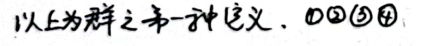 以上为群之第一种定义．①②③④．